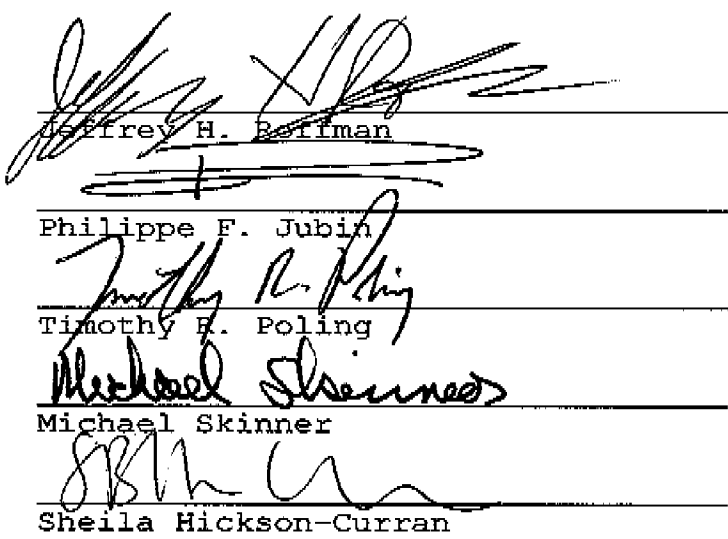 Jeffrey H. Roffman
Philippe F. Jubin
Timothy R. Poling
Timothy R. Poling
Michael Skinner
Michael Skinner
Sheila Hickson-Curran